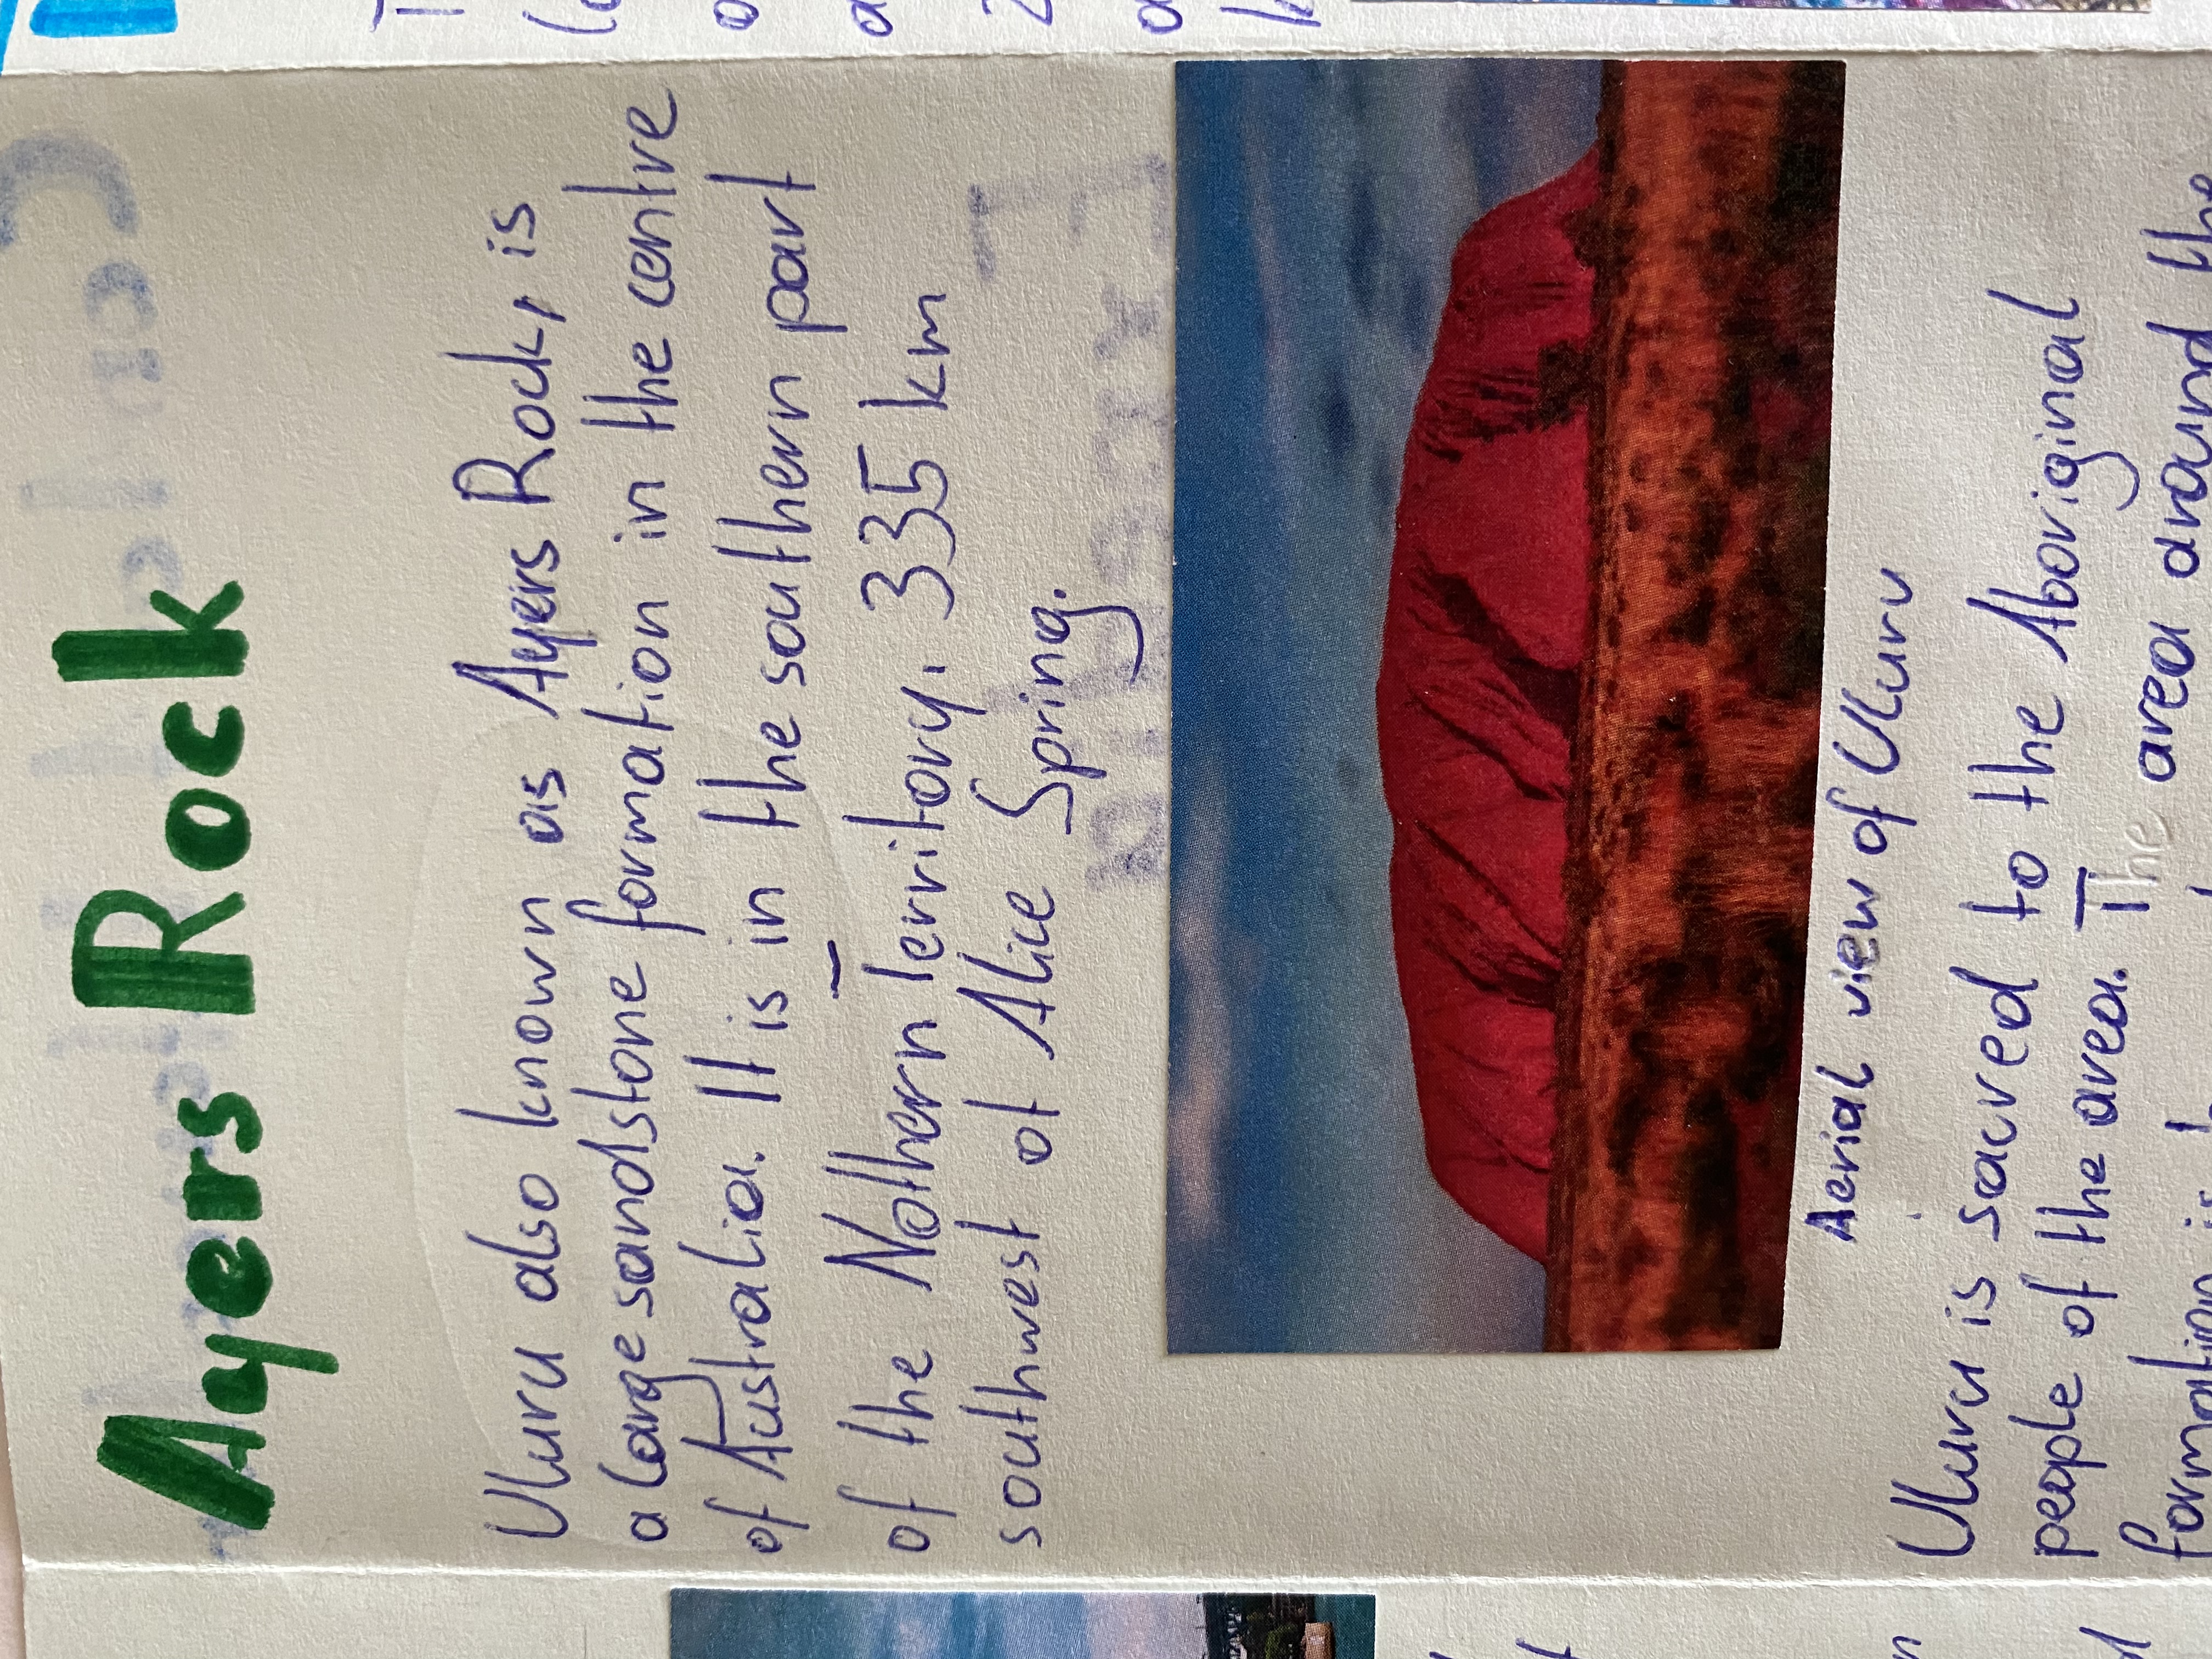 Ayers Rock
Uluru also known as Ayers Rock, is
a large sandstone formation in the centre
of Australia. It is in the southern part
of the Nothern Territory, 335 km
southwest of Alice Spring.
Aerial view of Uluru
Uluru is sacred to the Aboriginal
people of the area. The area around the
formation is